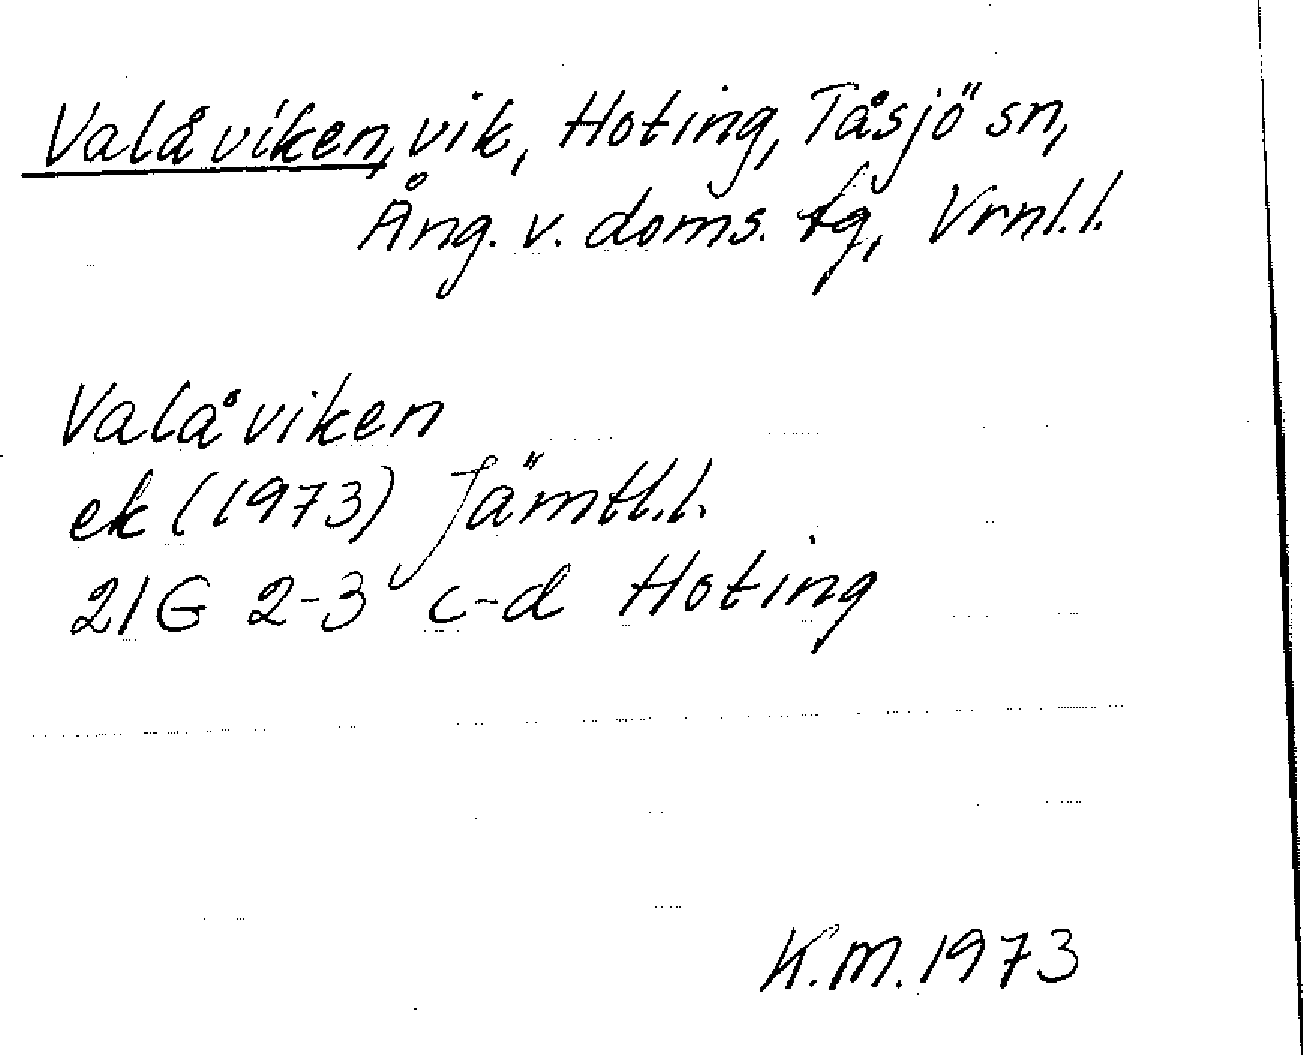 Valåviken, vik, Hoting, Tåsjö sn,
Ång. v. doms. tg, Vrnl.l.
Valåviken
ek (1973) Jämtl.l.
21G 2-3 c-d Hoting
K.M. 1973